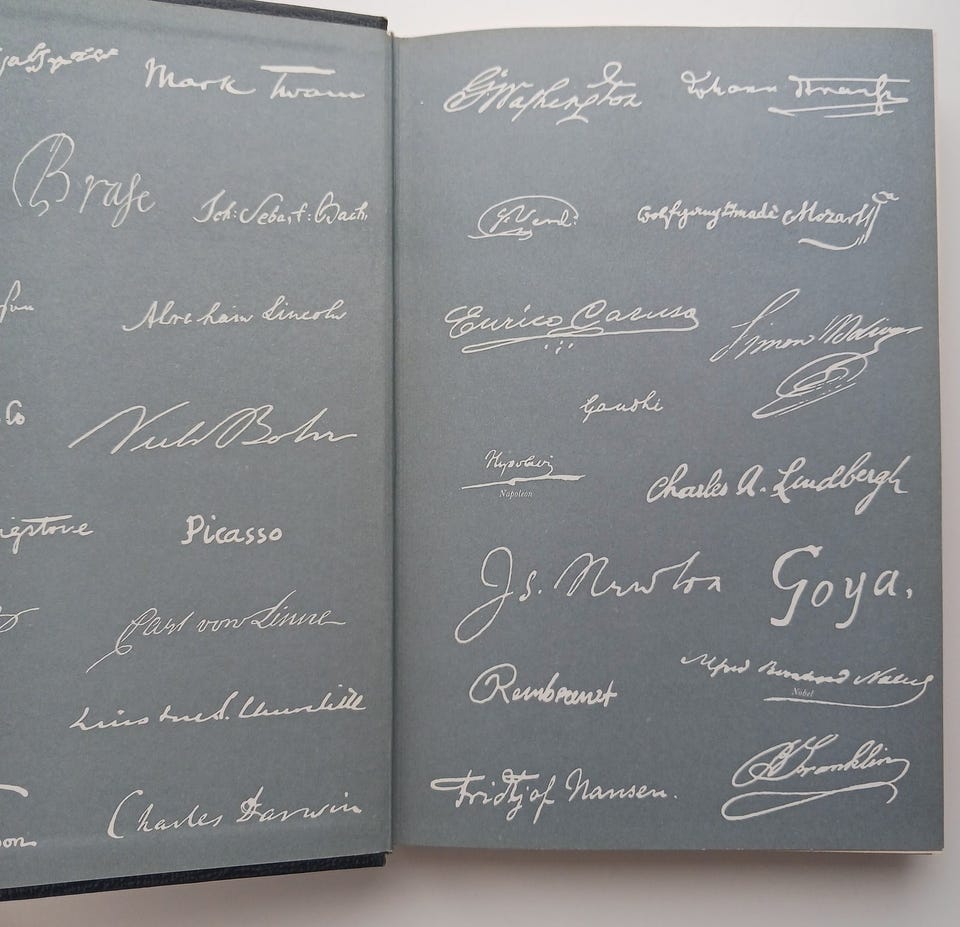 Mark Twain
Joh: Sebast: Bach.
Abraham Lincoln
Niels Bohr
Picasso
Carl von Linné
Winston S. Churchill
Charles Darwin
G Washington Johann Strauss
G Verdi Wolfgang Amadè Mozart
Enrico Caruso Simon Bolivar
Gandhi
Napoleon
Charles A. Lindbergh
Js. Newton Goya.
Rembrandt Alfred Bernhard Nobel
Nobel
Fridtjof Nansen. B Franklin